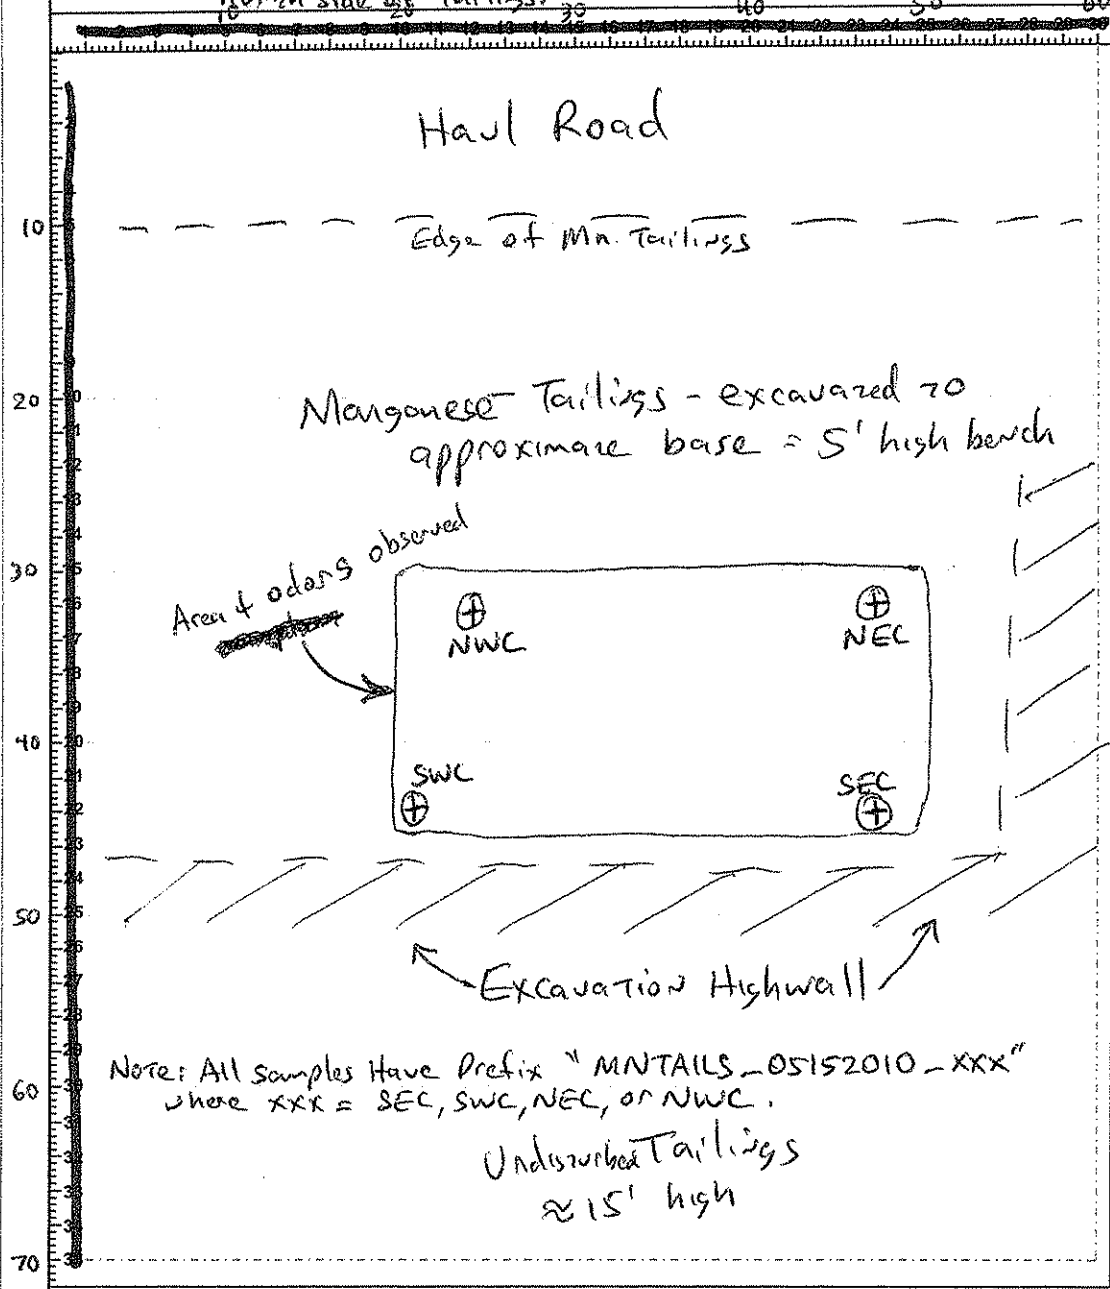 side of Tailings.
10 20 30 40 50 60
Haul Road
10
Edge of Mn. Tailings
20
Manganese Tailings - excavated to
approximate base = 5' high bench
Area of odors observed
30
NWC NEC
40
SWC SEC
50
Excavation Highwall
Note: All samples Have Prefix "MNTAILS_05152010_XXX"
60
where XXX = SEC, SWC, NEC, or NWC.
Undisturbed Tailings
≈ 15' high
70